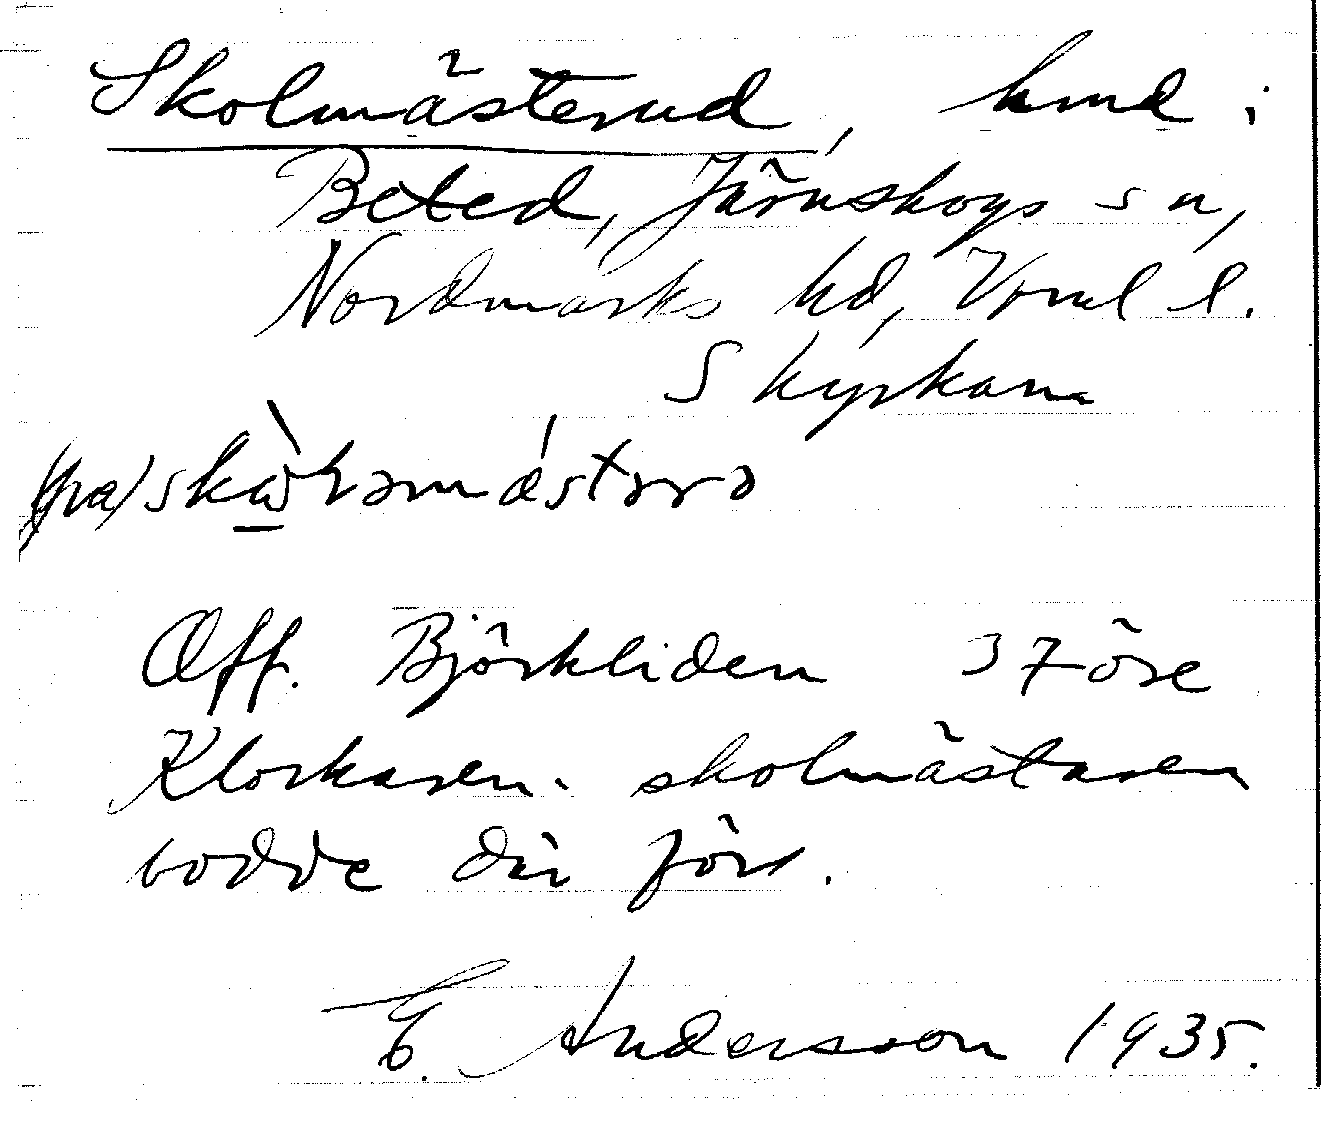 Skolmästerud, hmd i
Beted, Järnskogs sn,
Nordmarks hd, Vrml l.
S kyrkan
(pa) skὼləmástərə
Off. Björkliden 37öre
Klockaren. skolmästaren
bodde där förr.
E. Andersson 1935.